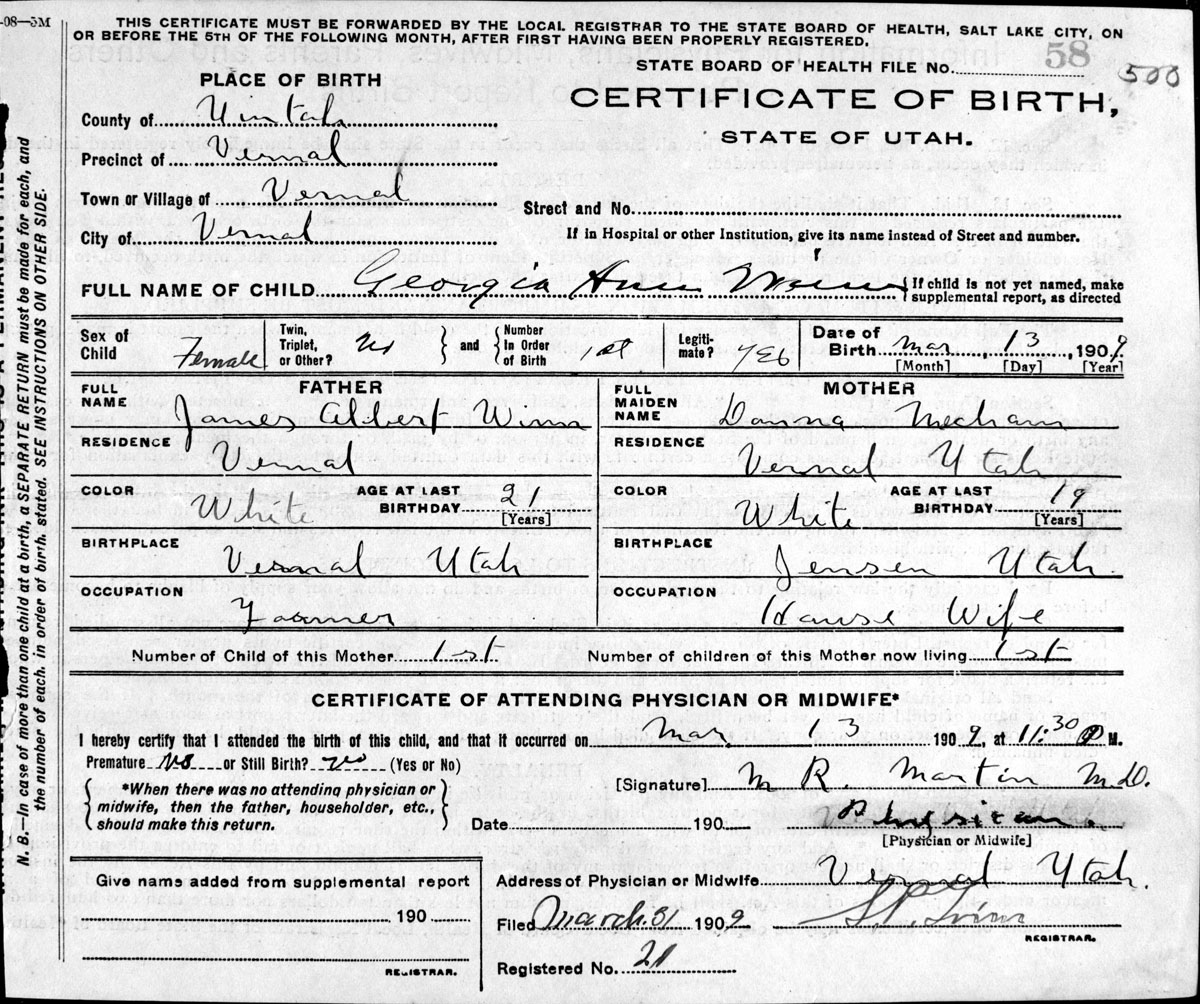 -08—5M
THIS CERTIFICATE MUST BE FORWARDED BY THE LOCAL REGISTRAR TO THE STATE BOARD OF HEALTH, SALT LAKE CITY, ON
OR BEFORE THE 5TH OF THE FOLLOWING MONTH, AFTER FIRST HAVING BEEN PROPERLY REGISTERED.
STATE BOARD OF HEALTH FILE No. 58
500
PLACE OF BIRTH
CERTIFICATE OF BIRTH,
STATE OF UTAH.
County of Uintah
Precinct of Vernal
Town or Village of Vernal
Street and No.
City of Vernal
If in Hospital or other Institution, give its name instead of Street and number.
FULL NAME OF CHILD Georgia Ann
If child is not yet named, make
supplemental report, as directed
Sex of Child Female
Twin, Triplet, or Other? No
and Number In Order of Birth 1st
Legitimate? Yes
Date of Birth Mar, 13, 1909
[Month] [Day] [Year]
FATHER
FULL NAME James Albert Winn
RESIDENCE Vernal
COLOR White
AGE AT LAST BIRTHDAY 21
[Years]
BIRTHPLACE Vernal Utah
OCCUPATION Farmer
MOTHER
FULL MAIDEN NAME Donna Mecham
RESIDENCE Vernal Utah
COLOR White
AGE AT LAST BIRTHDAY 19
[Years]
BIRTHPLACE Jensen Utah.
OCCUPATION House Wife
Number of Child of this Mother 1st Number of children of this Mother now living 1st
CERTIFICATE OF ATTENDING PHYSICIAN OR MIDWIFE*
I hereby certify that I attended the birth of this child, and that it occurred on Mar. 13 1909, at 11:30 P M.
Premature No or Still Birth? No (Yes or No)
[Signature] M R. Martin M.D.
*When there was no attending physician or
midwife, then the father, householder, etc.,
should make this return.
Date 190 Physician
[Physician or Midwife]
Give name added from supplemental report
190
REGISTRAR.
Address of Physician or Midwife Vernal Utah.
Filed March 31 1909
REGISTRAR.
Registered No. 21
N. B.—In case of more than one child at a birth, a SEPARATE RETURN must be made for each, and
the number of each, in order of birth, stated. SEE INSTRUCTIONS ON OTHER SIDE.